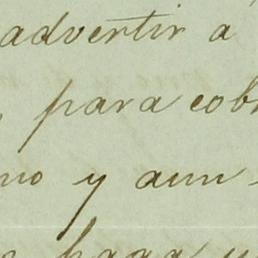 advertir á
, para cob
no y aun
haga y